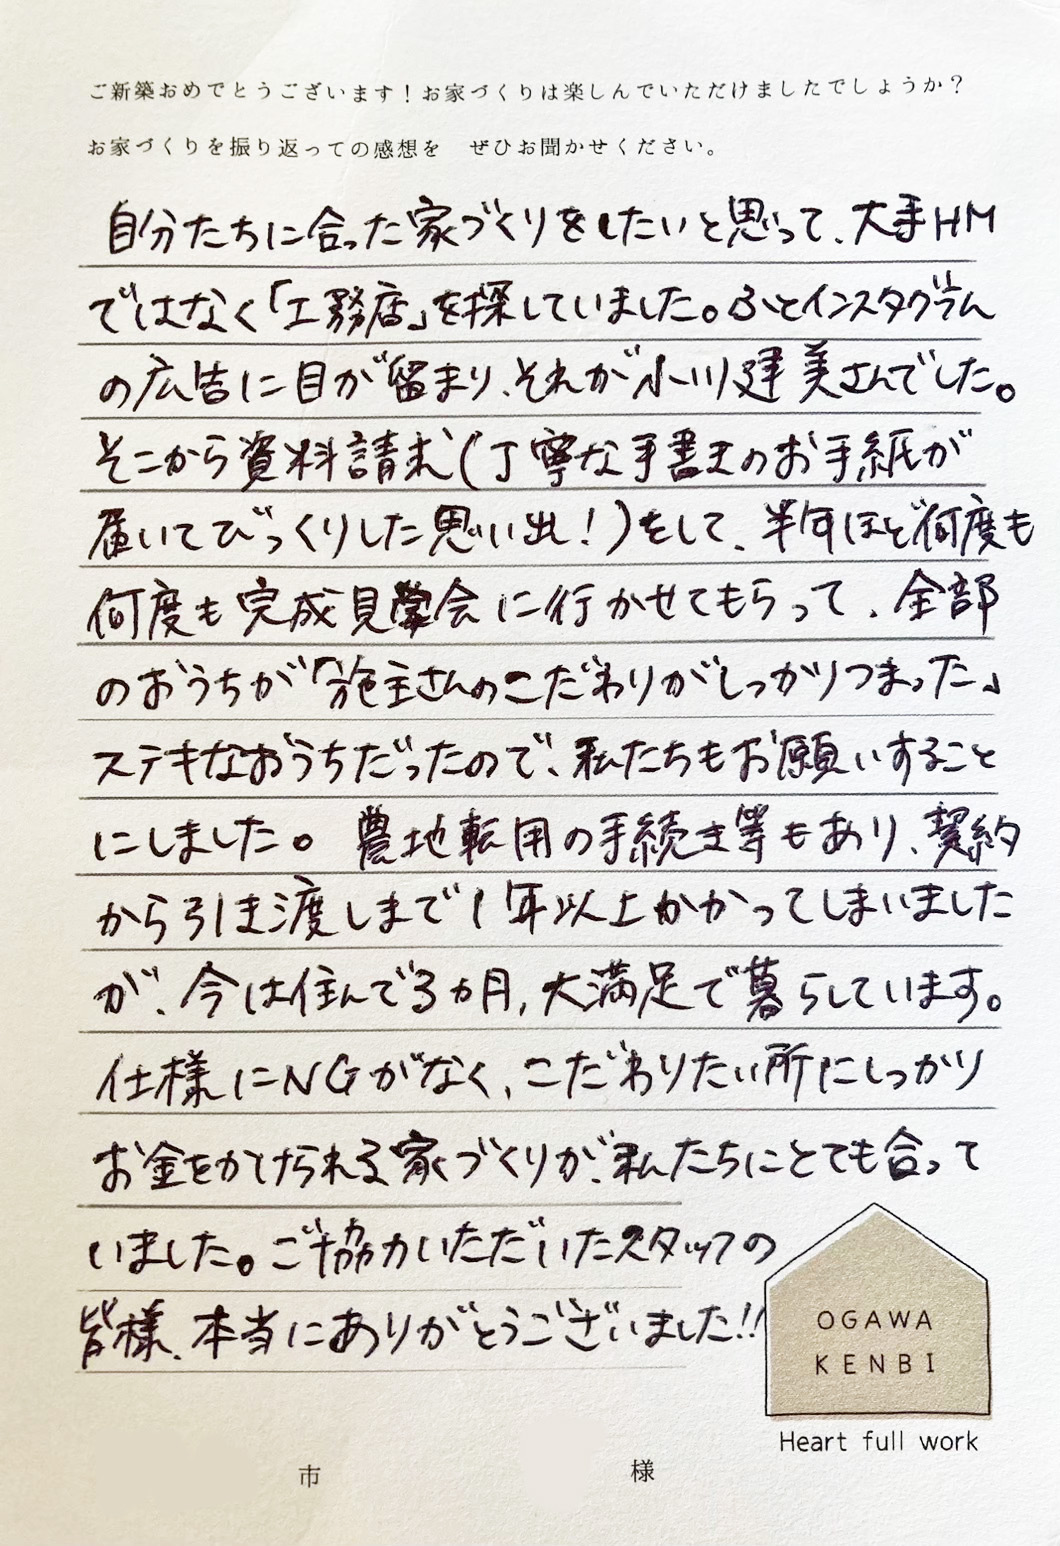 ご新築おめでとうございます！お家づくりは楽しんでいただけましたでしょうか？
お家づくりを振り返っての感想を　ぜひお聞かせください。
自分たちに合った家づくりをしたいと思って、大手HM
ではなく「工務店」を探していました。ふとインスタグラム
の広告に目が留まり、それが小川建美さんでした。
そこから資料請求（丁寧な手書きのお手紙が
届いてびっくりした思い出！）をして、半年ほど何度も
何度も完成見学会に行かせてもらって、全部
のおうちが「施主さんのこだわりがしっかりつまった」
ステキなおうちだったので、私たちもお願いすること
にしました。農地転用の手続き等もあり、契約
から引き渡しまで1年以上かかってしまいました
が、今は住んで3ヵ月，大満足で暮らしています。
仕様にNGがなく、こだわりたい所にしっかり
お金をかけられる家づくりが、私たちにとても合って
いました。ご協力いただいたスタッフの
皆様、本当にありがとうございました!!
OGAWA
KENBI
Heart full work
市　様